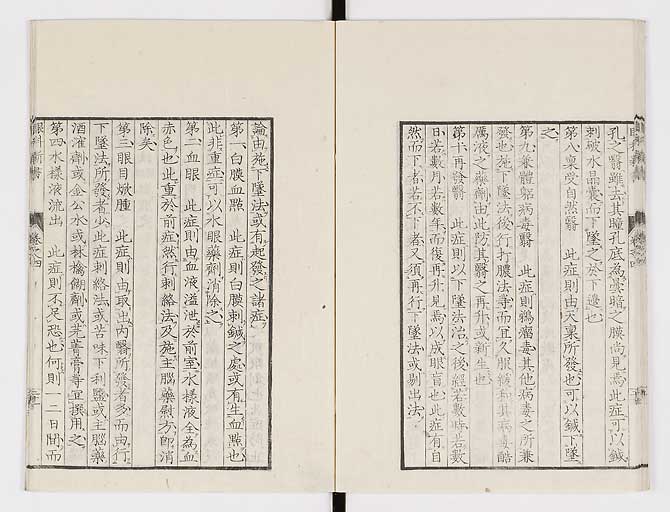 孔之翳雖去其瞳孔底為曇暗之膜尚見焉此症可以鍼
刺破水晶囊而下墜之於下邊也
第八稟受自然翳　此症則由天稟所發也可以鍼下墜
之
第九兼體軀病毒翳　此症則鶏瘤毒其他病毒之所兼
發也施下墜法後行打膿法等而宜久服緩和其病毒酷
厲液之藥劑由此防其翳之再升或新生也
第十再發翳　此症則以下墜法治之後經若數時若數
日若數月若數年而復再升見焉以成眼盲也此症有自
然而下者若不下者又須再行下墜法或剔出法
論由施下墜法或有起發之諸症
第一白膜血點　此症則白膜刺鍼之處或有生血點也
此非重症可以水眼藥劑消除之
第二血眼　此症則由血液溢泄於前室水樣液全為血
赤色也此重於前症然行刺絡法及施主腦藥慰方即消
除矣
第三眼目焮腫　此症則由取出內翳所發者多而由行
下墜法所發者少此症刺絡法或苦味下利鹽或主腦藥
酒灌劑或金公水或林檎餬劑或芽菁膏等宜撰用之
第四水樣液流出　此症則不足恐也何則一二日間而
眼科新書
卷之四